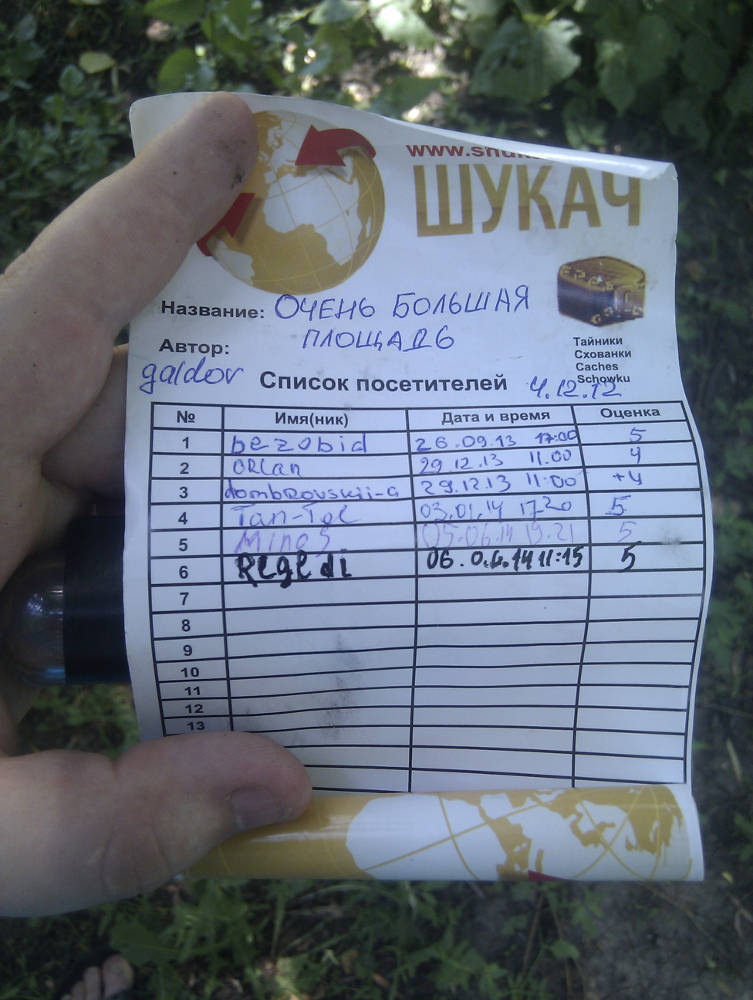 ШУКАЧ
Название: ОЧЕНЬ БОЛЬШАЯ
ПЛОЩАДЬ
Автор:
galdor
Тайники
Схованки
Caches
Schowku
Список посетителей 4.12.12
№ Имя(ник) Дата и время Оценка
1 bezobid 26.09.13 17:00 5
2 ORLan 29.12.13 11.00 4
3 dombrovskii-a 29.12.13 11:00 +4
4 Tan-Tol 03.01.14 17 20 5
5 Minos 05.06.14 19.21 5
6 Regedi 06.06.14 11:15 5
7
8
9
10
11
12
13